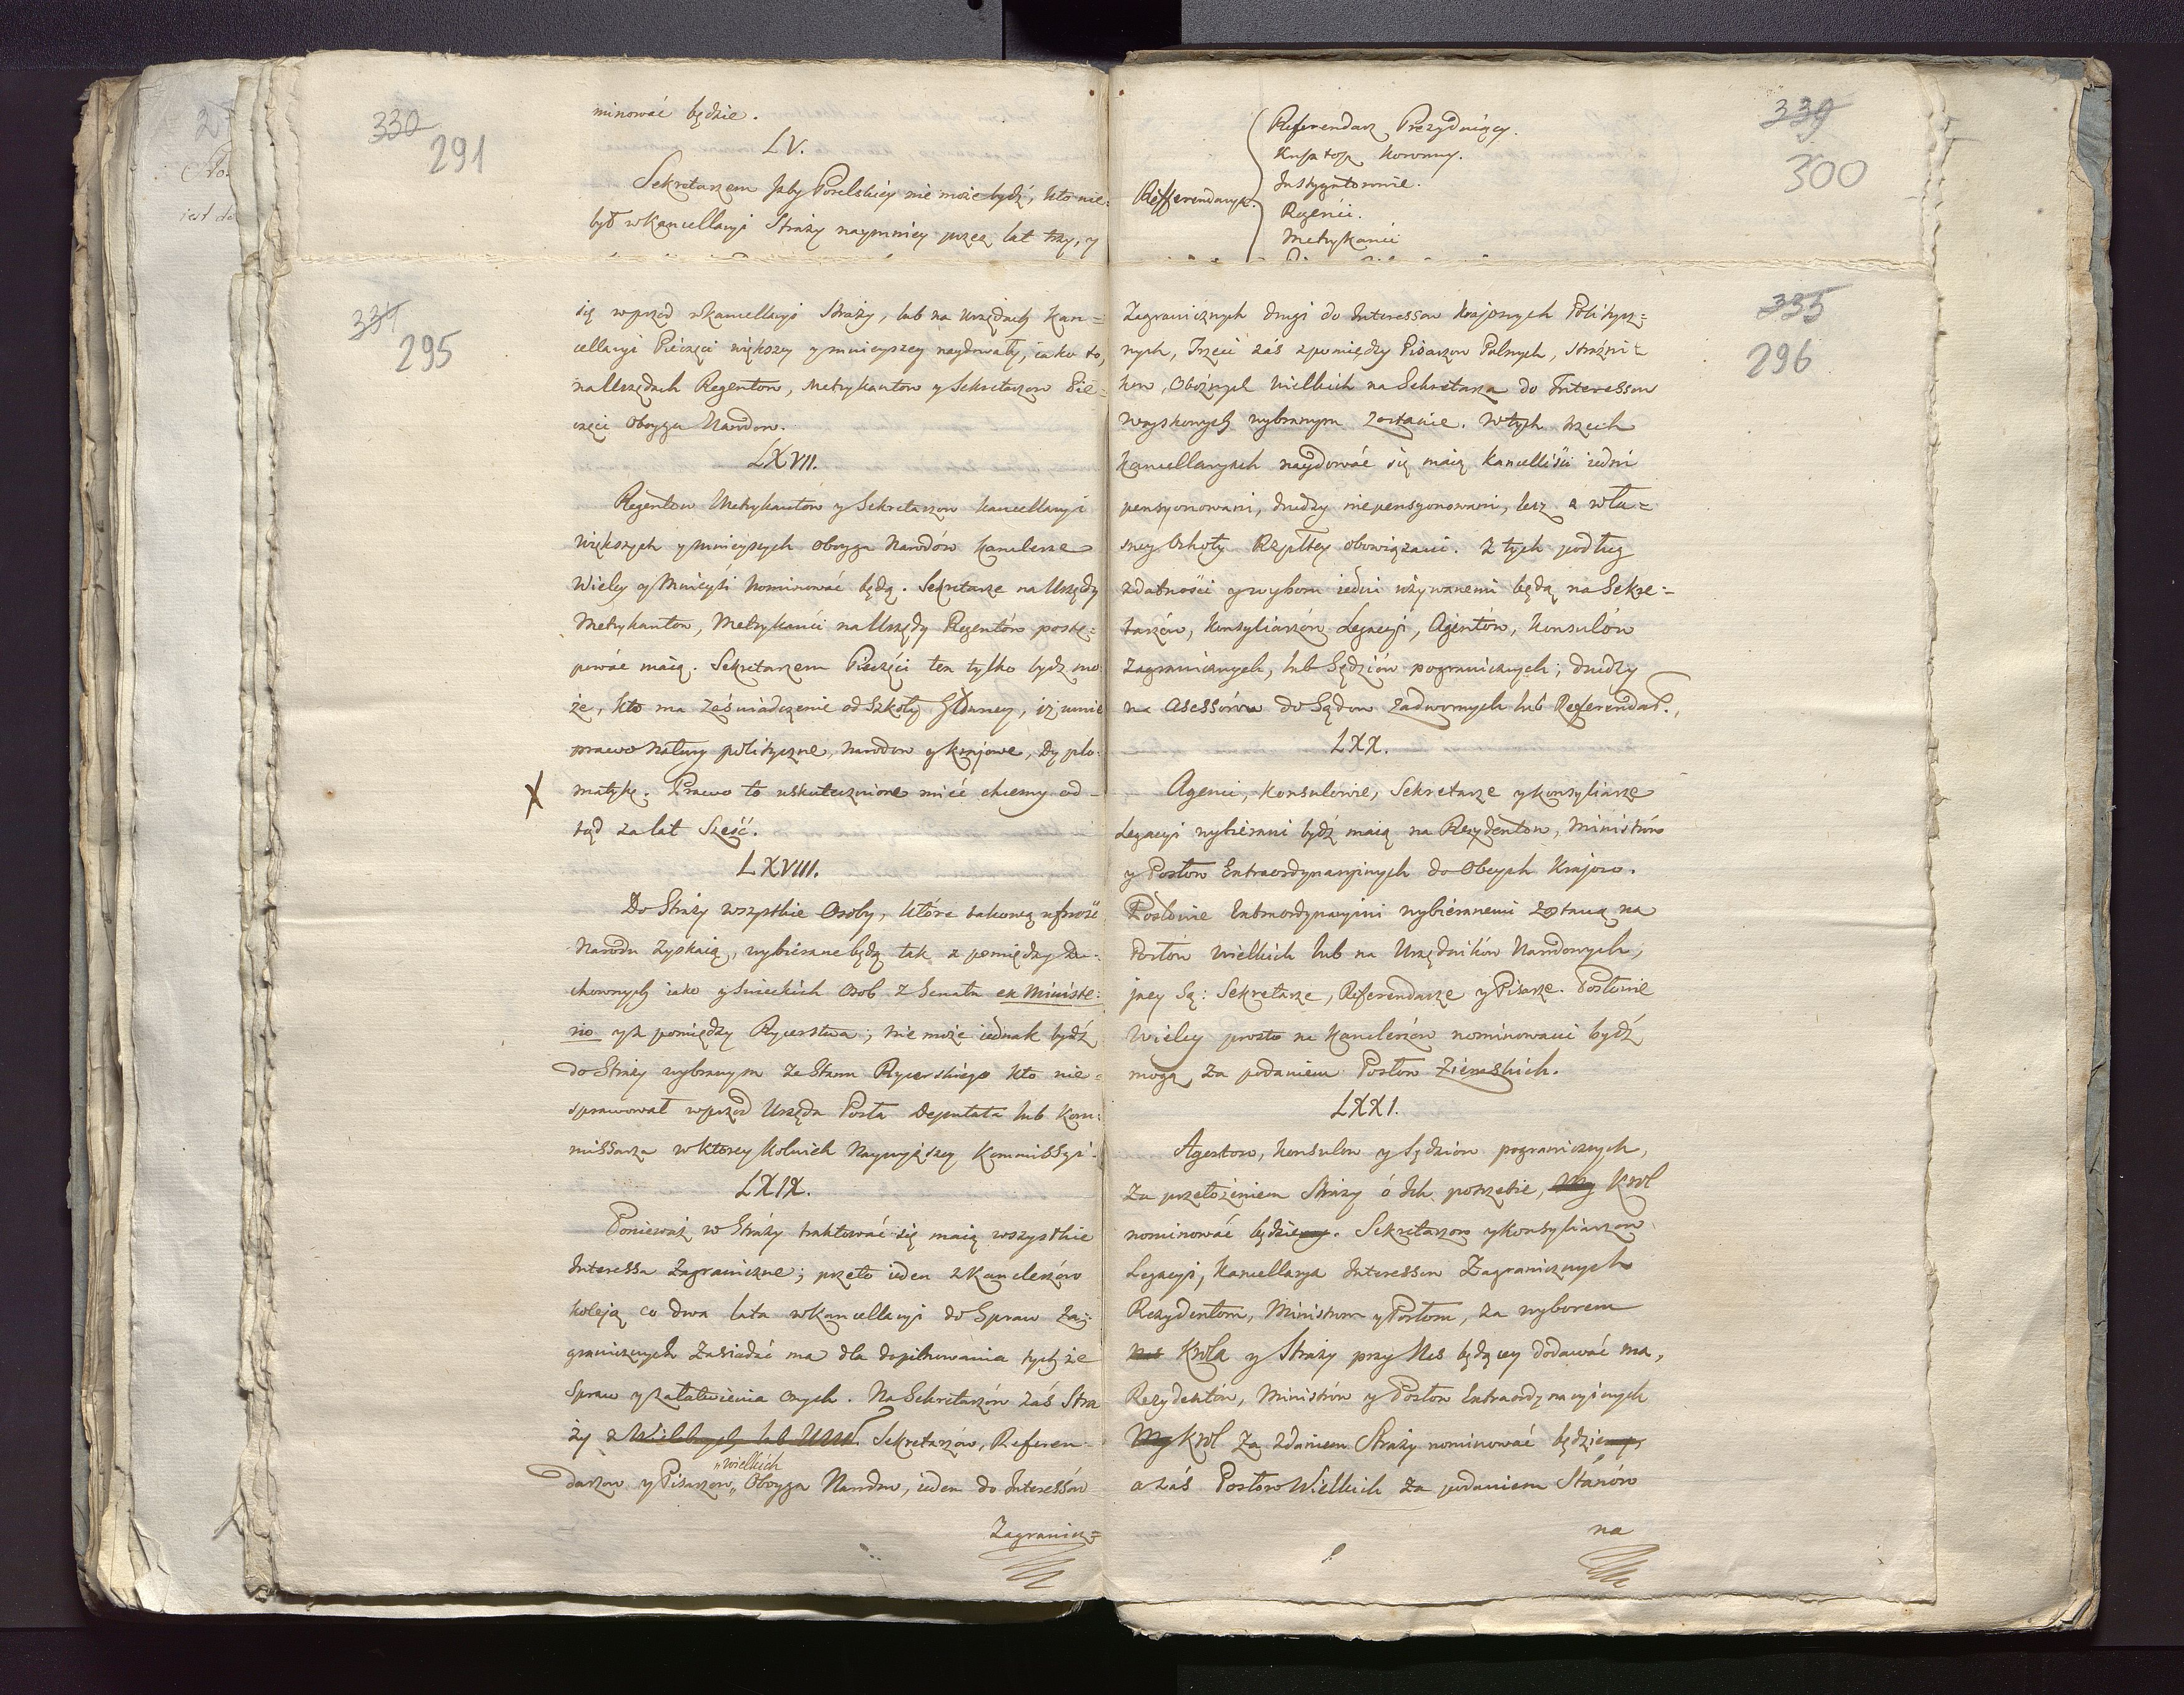 330
291
minować będzie.
LV.
Sekretarzem Jzby Poselskiey nie może bydź, kto nie-
był w Kancellaryi Straży naymniey przez lat trzy, y
334
295
się wprzod w Kancellaryi Straży, lub na Urzędach Kan=
cellaryi Pieczęci większey y mnieyszey naydowały, iako to,
na Urzędach Regentow, Metrykantow y Sekretarzow Pie=
częci oboyga Narodow.
LXVII.
Regentow Metrykantów y Sekretarzow Kancellaryi
większych y mnieyszych oboyga Narodów Kanclerze
Wielcy y Mnieysi Nominować będą. Sekretarze na Urzędy
Metrykantow, Metrykańci na Urzędy Regentów postę=
pować maią. Sekretarzem Pieczęci ten tylko bydz mo=
że, kto ma zaświadczenie od Szkoły Główney, iż umie
prawo Natury polityczne, Narodow y Krajowe, Dyplo-
X matykę. Prawo to uskutecznione mieć chcemy od-
tąd za lat Sześć.
LXVIII.
Do Straży wszystkie Osoby, które takową ufność
Narodu zyskaią, wybierane będą tak z pomiędzy Du-
chownych iako y Swieckich Osob z Senatu ex Ministe=
rio y z pomiędzy Rycerstwa; nie może iednak bydź
do Straży wybranym ze Stanu Rycerskiego kto nie=
sprawował wprzod Urzędu Posła Deputata lub Kom=
missarza w ktorey kolwiek Naywyższey Kommissyi.
LXIX.
Ponieważ w Straży traktować się maią wszystkie
Interessa Zagraniczne; przeto ieden z Kanclerzów
koleją co dwa lata w Kancellaryi do Spraw Za=
granicznych Zasiadać ma dla dopilnowania tychże
Spraw y załatwienia onych. Na Sekretarzów zaś Stra
ży z Sekretarzów, Referen-
"wielkich
darzow y Pisarzow" Oboyga Narodow, ieden do Interessów
Zagranicz=
339
300
Refferendarze
Referendarz Prezyduiący.
Koronny.
Instygatorowie.
Regenci.
Metrykanci
335
296
Zagranicznych drugi do Interessow krajowych Politycz=
nych, Trzeci zaś z pomiędzy Pisarzow Polnych, Strażni=
kow, Oboźnych Wielkich na Sekretarza do Interessow
Woyskowych wybranym zostanie. W tych trzech
Kancellaryach naydować się maią Kancellisci iedni
pensyonowani, drudzy niepensyonowani, lecz z wła=
sney Ochoty Rzpltey obowiązani. Z tych podług
zdatności y wyboru iedni używanemi będą na Sekre=
tarzów, Konsyliarzów Legacyi, Agentów, Konsulów
Zagranicznych, lub Sędziów pogranicznych; drudzy
na Assessórów do Sądow Zadwornych lub Referendar.,
LXX.
Agenci, Konsulowie, Sekretarze y Konsyliarze
Legacyi wybierani bydź maią na Rezydentow, Ministrów
y Posłow Extraordynaryinych do Obcych Krajow.
Posłowie Extraordynaryini wybieranemi zostaną na
Posłów Wielkich lub na Urzędników Narodowych,
jacy są: Sekretarze, Referendarze y Pisarze. Posłowie
Wielcy prosto na Kanclerzów nominowani bydź
mogą za podaniem Posłow Ziemskich.
LXXI.
Agentow, Konsulow y Sędziow pogranicznych,
za przełożeniem Straży ó Ich potrzebie, My Krol
nominować będziemy. Sekretarzow y Konsyliarzow
Legacyi, Kancellarya Interessow Zagranicznych
Rezydentom, Ministrom y Posłom, za wyborem
Nas Króla y Straży przy Nas będącey dodawać ma,
Rezydentów, Ministrów y Posłow Extraordynaryinych
My Krol za zdaniem Straży nominować będziemy
a zaś Posłow Wielkich za podaniem Stanów
na